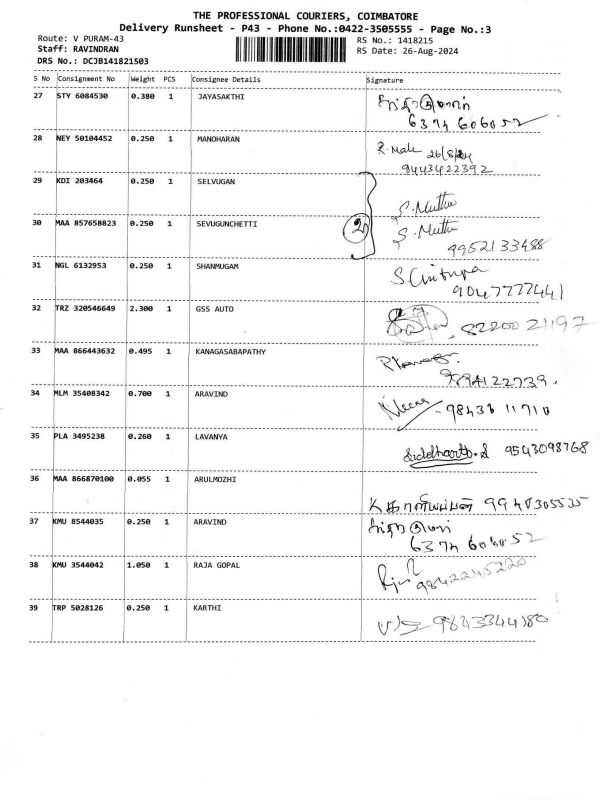 THE PROFESSIONAL COURIERS, COIMBATORE
Delivery Runsheet - P43 - Phone No.:0422-3505555 - Page No.:3
Route: V PURAM-43 RS No.: 1418215
Staff: RAVINDRAN RS Date: 26-Aug-2024
DRS No.: DCJB141821503
S No Consignment No Weight PCS Consignee Details Signature
27 STY 6084530 0.380 1 JAYASAKTHI
6374 606052
28 NEY 50104452 0.250 1 MANOHARAN
R. Mala 26/8/24
9443422392
29 KDI 203464 0.250 1 SELVUGAN
S. Muthu
30 MAA 857658823 0.250 1 SEVUGUNCHETTI 2 S. Muthu
9952133488
31 NGL 6132953 0.250 1 SHANMUGAM
9047777441
32 TRZ 320546649 2.300 1 GSS AUTO
8220021197
33 MAA 866443632 0.495 1 KANAGASABAPATHY
9894122739.
34 MLM 35408342 0.700 1 ARAVIND
98433 11710
35 PLA 3495238 0.260 1 LAVANYA
Siddharth.S 9543098768
36 MAA 866870100 0.055 1 ARULMOZHI
9940305535
37 KMU 8544035 0.250 1 ARAVIND
6374 606052
38 KMU 3544042 1.050 1 RAJA GOPAL
9842245220
39 TRP 5028126 0.250 1 KARTHI
9843344180